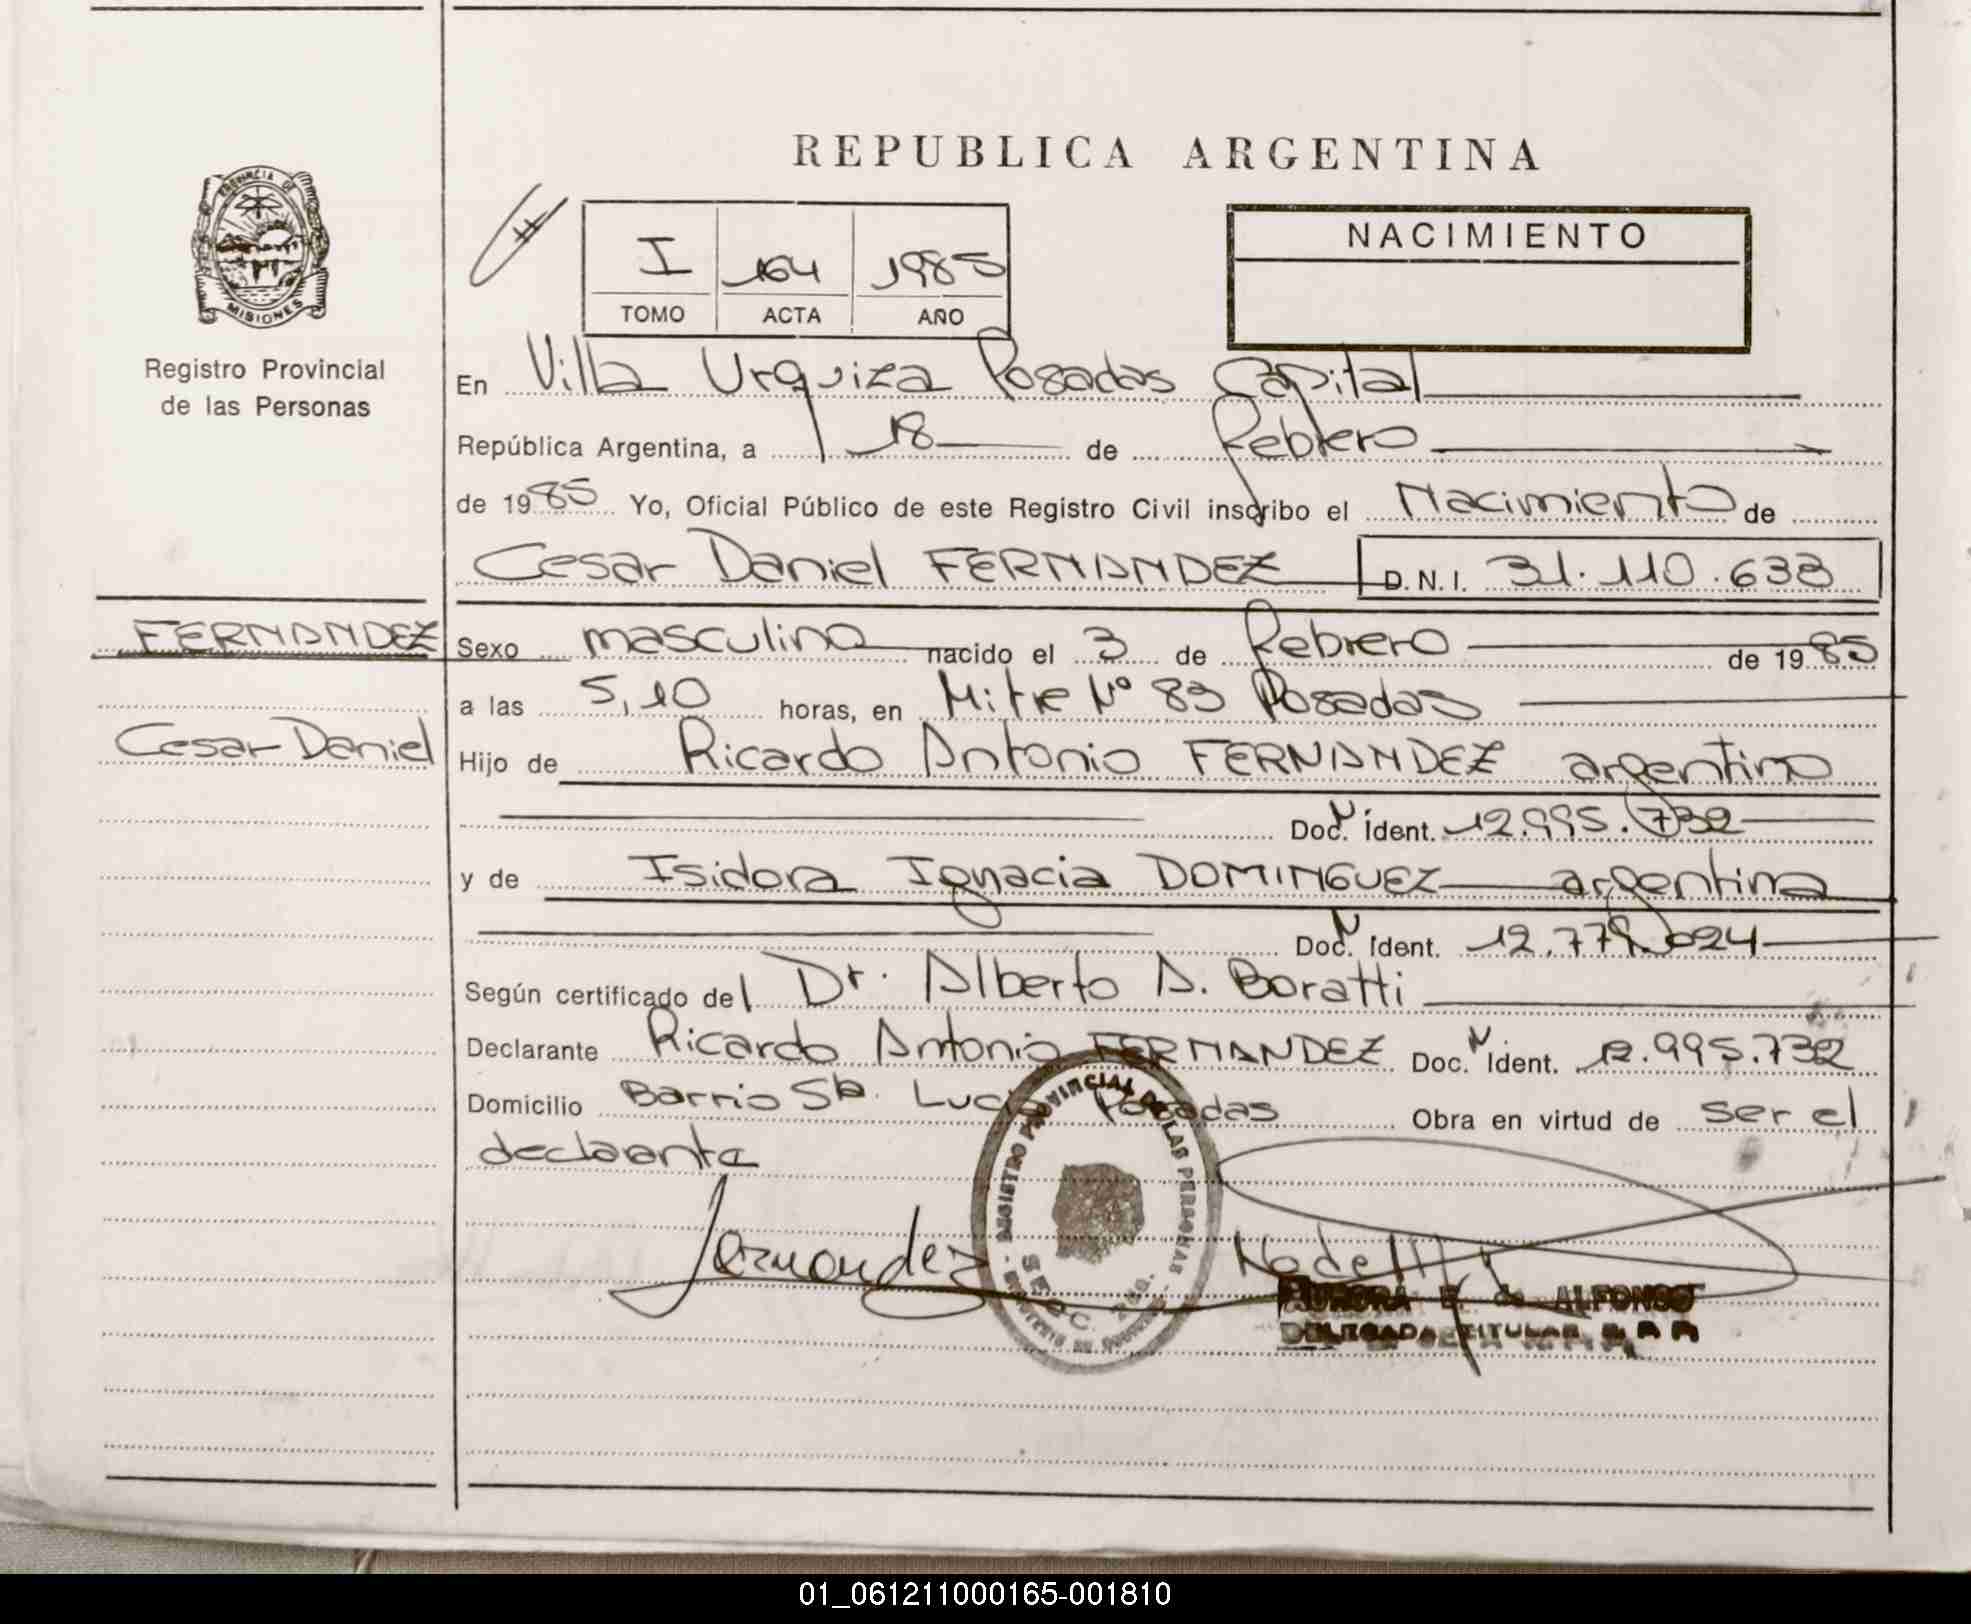 REPUBLICA ARGENTINA
PROVINCIA DE
MISIONES
Registro Provincial
de las Personas
I 164 1985
TOMO ACTA AÑO
NACIMIENTO
En Villa Urquiza Posadas Capital
República Argentina, a 18 de Febrero
de 1985 Yo, Oficial Público de este Registro Civil inscribo el Nacimiento de
Cesar Daniel FERNANDEZ D.N.I. 31.110.633
FERNANDEZ
Sexo masculino nacido el 3 de Febrero de 1985
a las 5,10 horas, en Mitre Nº 83 Posadas
Cesar Daniel
Hijo de Ricardo Antonio FERNANDEZ argentino
Doc. N Ident. 12.995.732
y de Isidora Ignacia DOMINGUEZ argentina
Doc. N Ident. 12.779.024
Según certificado del Dr. Alberto A. Boratti
Declarante Ricardo Antonio FERNANDEZ Doc. N Ident. 12.995.732
Domicilio Barrio Sta. Lucia Posadas Obra en virtud de ser el
declarante
Fernandez
REGISTRO PROVINCIAL DE LAS PERSONAS
AURORA de ALFONSO
DELEGADA TITULAR
01_061211000165-001810